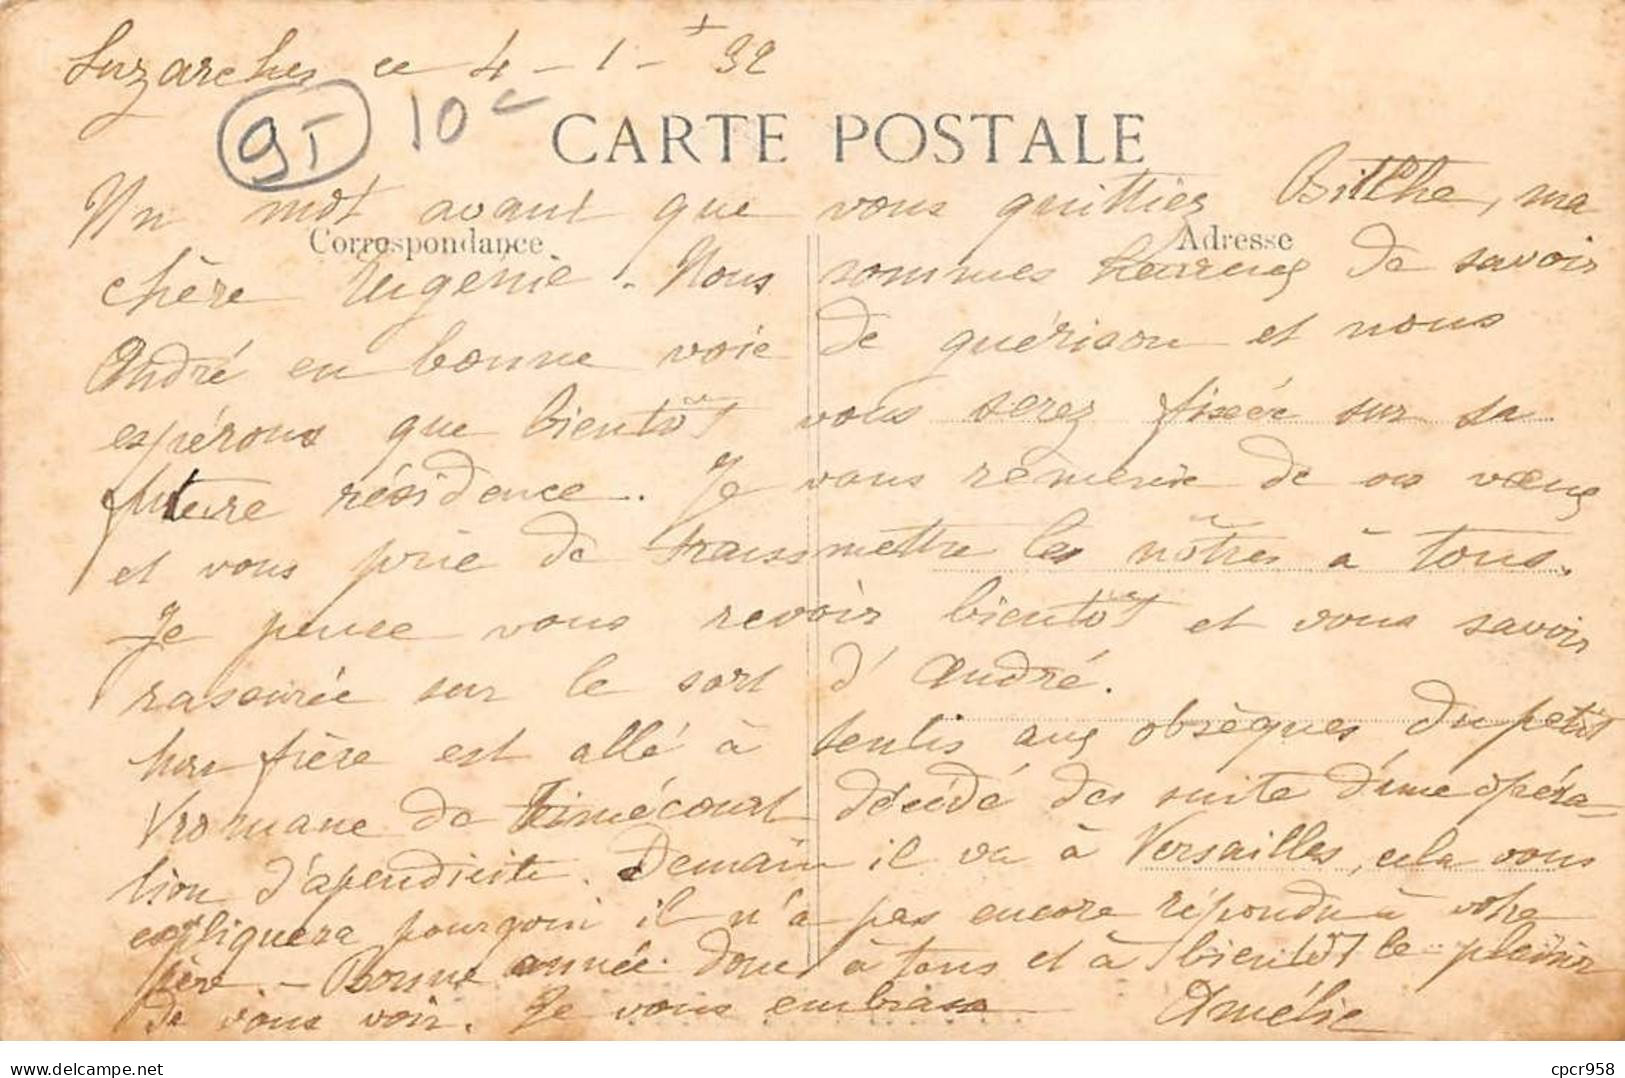 Luzarches ce 4-1-32
95 10c
CARTE POSTALE
Un mot avant que vous quittiez Bitche, ma
Correspondance Adresse
chère Eugénie. Nous sommes heureux de savoir
André en bonne voie de guérison et nous
espérons que bientôt vous serez fixée sur sa
future résidence. Je vous remercie de vos voeux
et vous prie de transmettre les nôtres à tous.
Je pense vous revoir bientôt et vous savoir
rassurée sur le sort d'André.
Mon frère est allé à Senlis aux obsèques du petit
Vromane de Thimécourt décédé des suite d'une opéra-
tion d'apendicite. Demain il va à Versailles, cela vous
expliquera pourquoi il n'a pas encore répondu à votre
père. - Bonne année donc à tous et à bientôt le plaisir
de vous voir. Je vous embrasse Amélie
delcampe.net
cpcr958